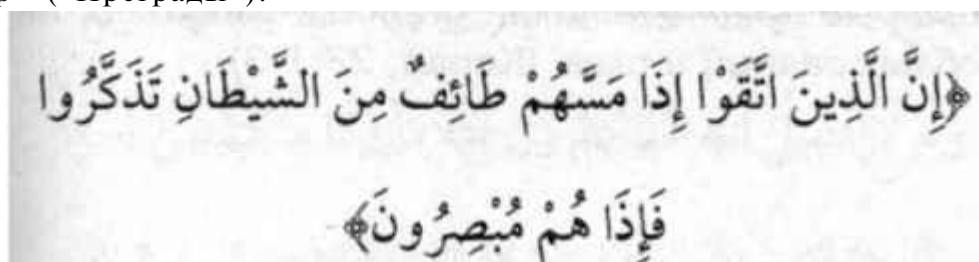 ("Преграды"):
﴿إِنَّ الَّذِينَ اتَّقَوْا إِذَا مَسَّهُمْ طَائِفٌ مِنَ الشَّيْطَانِ تَذَكَّرُوا
فَإِذَا هُمْ مُبْصِرُونَ﴾